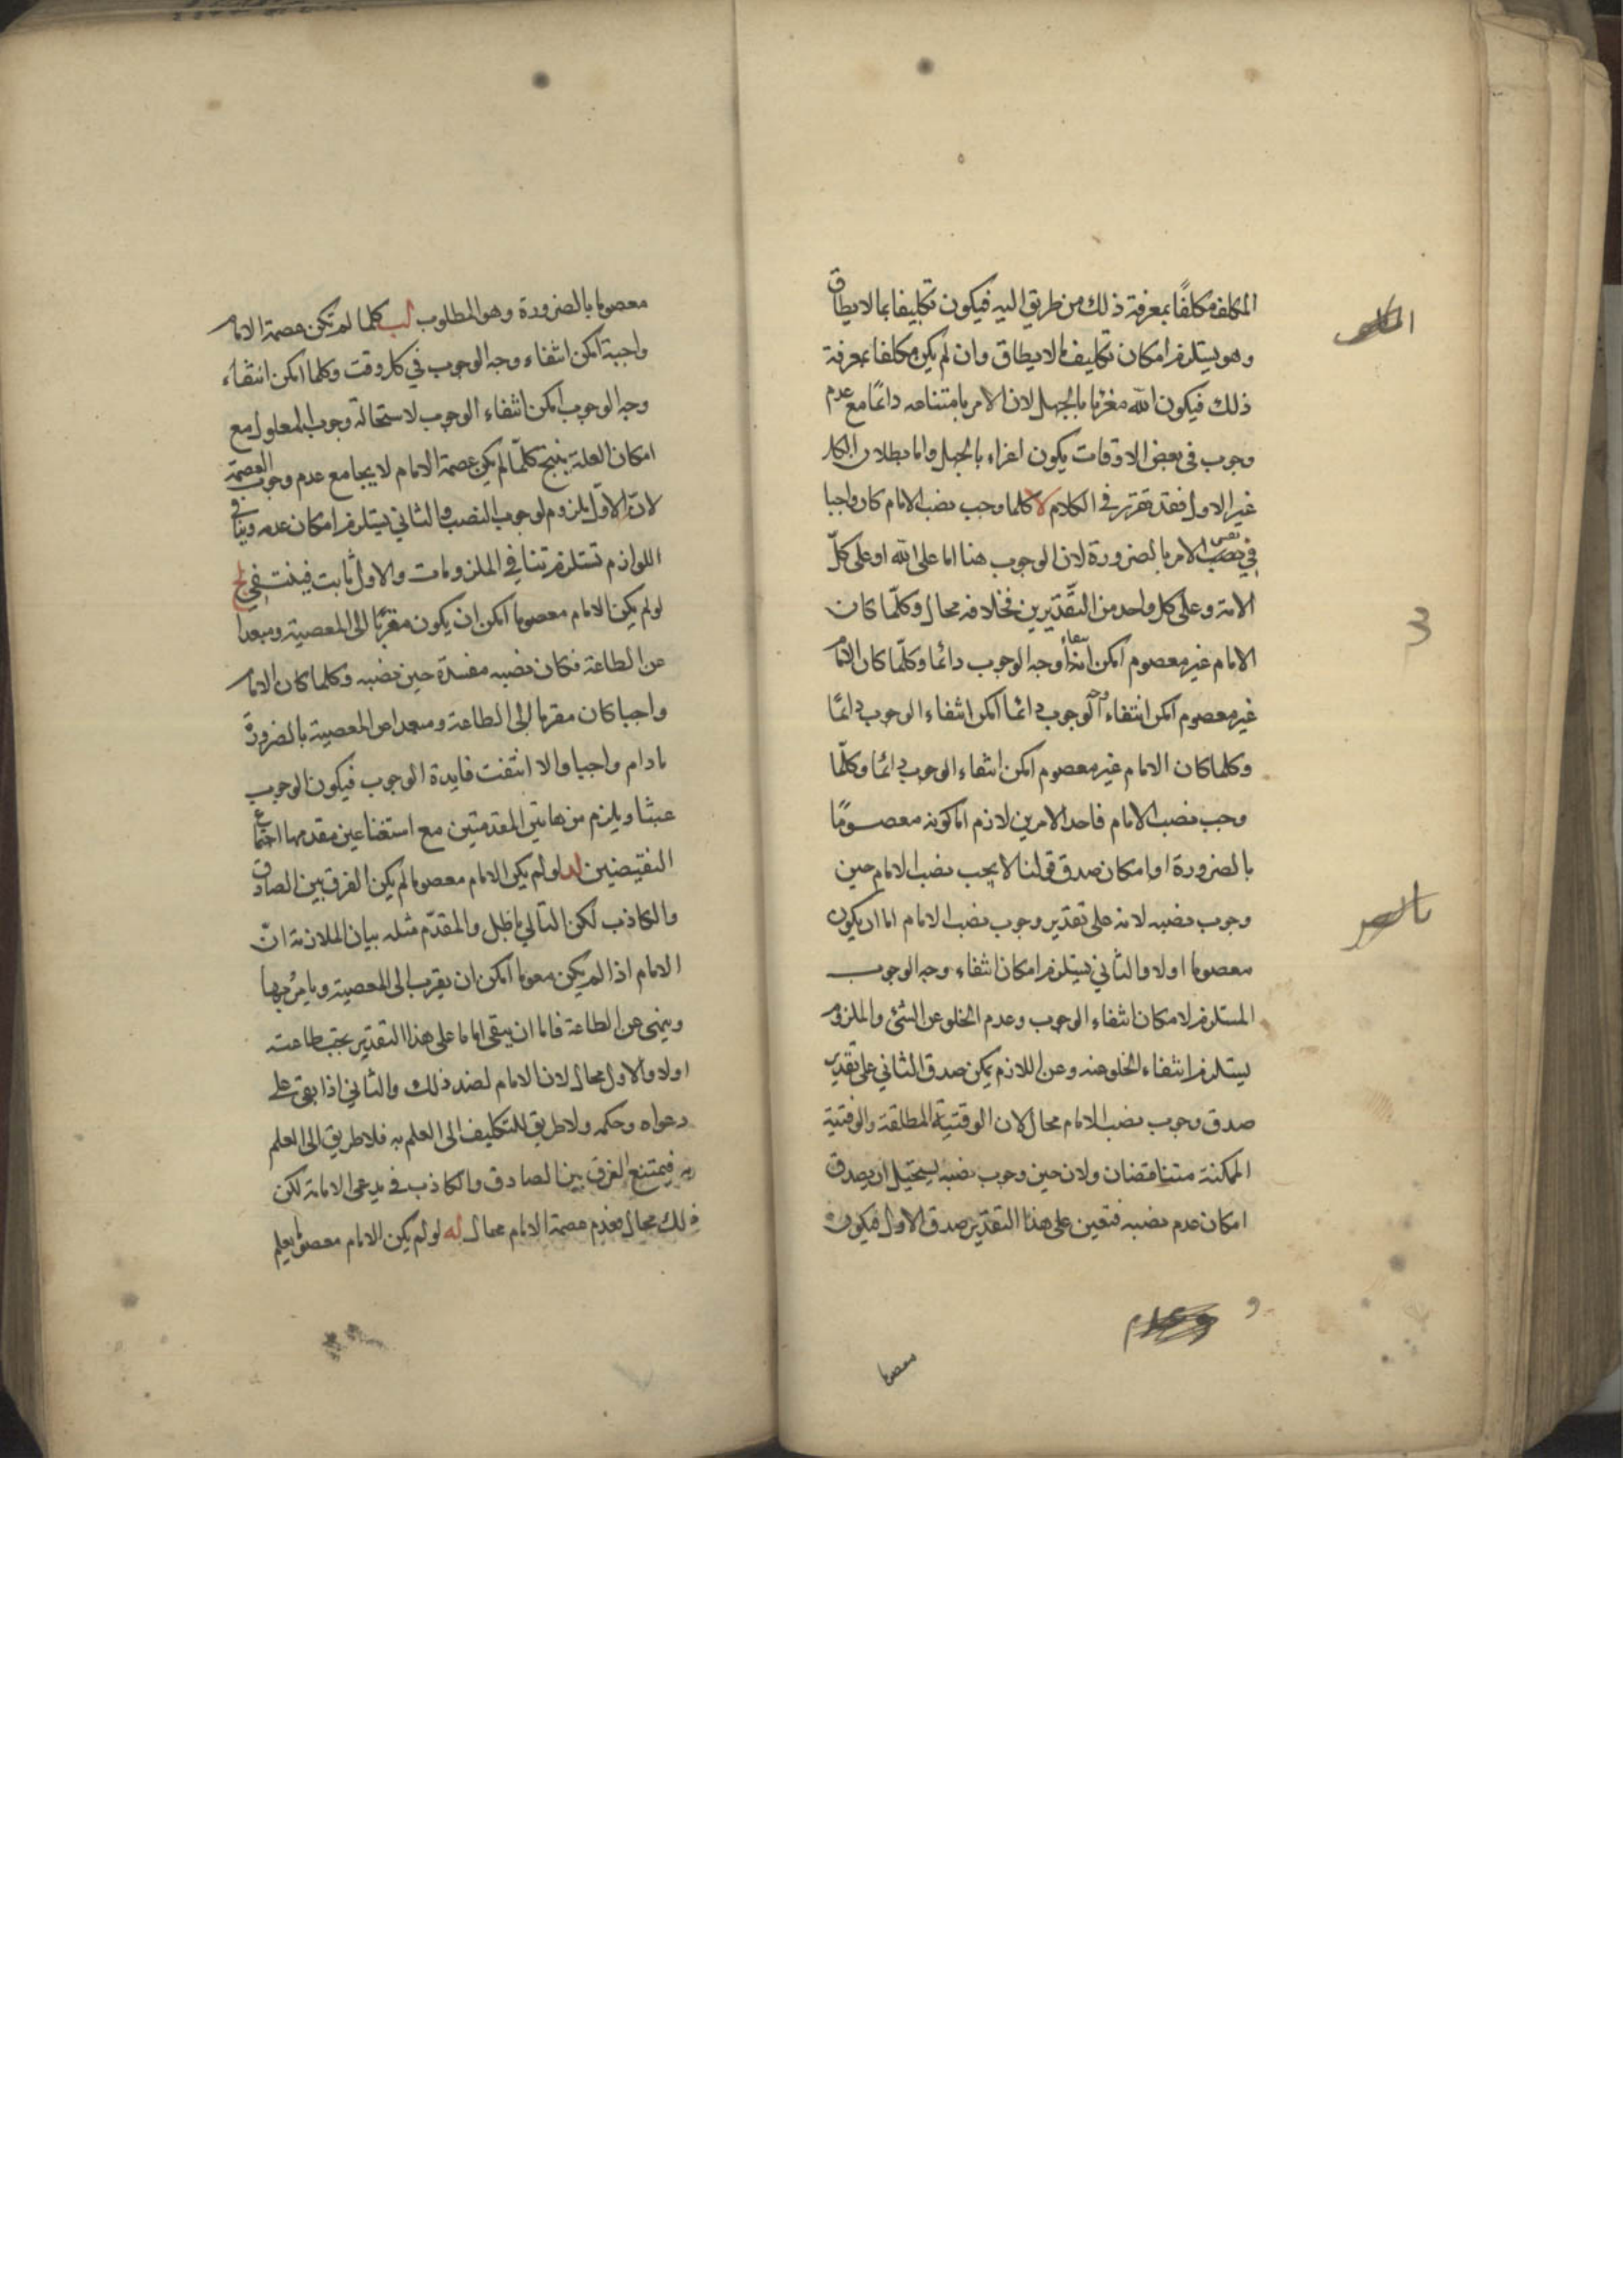 المكلف مكلفًا بمعرفة ذلك من طريق اليه فيكون تكليفا بما لا يطاق
وهو يستلزم امكان تكليف ما لا يطاق وان لم يكن مكلفا بمعرفة
ذلك فيكون الله مغريا بالجهل لان الامر بامتناعه دائمًا مع عدم
وجوب في بعض الاوقات يكون اغراء بالجهل واما بطلان الكل
غير الاول فقد تقرر في الكلام لا كلما وجب نصب الامام كان واجبا
في نفس الامر بالضرورة لان الوجوب هنا اما على الله او على كلّ
الامة وعلى كل واحد من التقديرين فخلافه محال وكلّما كان
الامام غير معصوم امكن انتفاء وجه الوجوب دائما وكلّما كان الامام
غير معصوم امكن انتفاء وجه الوجوب دائما امكن انتفاء الوجوب دائمًا
وكلما كان الامام غير معصوم امكن انتفاء الوجوب دائما وكلّما
وجب نصب الامام فاحد الامرين لازم اما كونه معصومًا
بالضرورة او امكان صدق قولنا لا يجب نصب الامام حين
وجوب نصبه لانه على تقدير وجوب نصب الامام اما ان يكون
معصوما اولا والثاني يستلزم امكان انتفاء وجه الوجوب
المستلزم لامكان انتفاء الوجوب وعدم الخلو عن الشئ والملزوم
يستلزم انتفاء الخلو عنه وعن اللازم يمكن صدق الثاني على تقدير
صدق وجوب نصب الامام محال لان الوقتية المطلقة والوقتية
الممكنة متناقضان ولان حين وجوب نصبه يستحيل ان يصدق
امكان عدم نصبه فتعين على هذا التقدير صدق الاول فيكون
معصوما
معصوما بالضرورة وهو المطلوب لب كلما لم تكن عصمة الامام
واجبة امكن انتفاء وجه الوجوب في كل وقت وكلما امكن انتفاء
وجه الوجوب امكن انتفاء الوجوب لاستحالة وجوب المعلول مع
امكان العلة ينتج كلّما لم يكن عصمة الامام لا يجامع عدم وجوب العصمة
لانّ الاوّل ملزوم لوجوب النصب والثاني يستلزم امكان عدمه وتنافي
اللوازم تستلزم تنافي الملزومات والاول ثابت فينتفي لج
لو لم يكن الامام معصوما امكن ان يكون مقربًا الى المعصية ومبعدا
عن الطاعة فكان نصبه مفسدة حين نصبه وكلما كان الامام
واجبا كان مقربا الى الطاعة ومبعدا عن المعصية بالضرورة
مادام واجبا والا انتفت فايدة الوجوب فيكون الوجوب
عبثا ويلزم من هاتين المقدمتين مع استثنا عين مقدمها اجتماع
النقيضين لد لو لم يكن الامام معصوما لم يكن الفرق بين الصادق
والكاذب لكن التالي باطل والمقدّم مثله بيان الملازمة انّ
الامام اذا لم يكن معوما امكن ان يقرب الى المعصية ويامر بها
وينهى عن الطاعة فاما ان يبقى اماما على هذا التقدير يجب طاعته
اولا والاول محال لان الامام لضد ذلك والثاني اذا بقي على
دعواه وحكمه ولا طريق للتكليف الى العلم به فلا طريق الى العلم
به فيمتنع الفرق بين الصادق والكاذب في مدعي الامامة لكن
ذلك محال فعدم عصمة الامام محال له لو لم يكن الامام معصوما يعلم